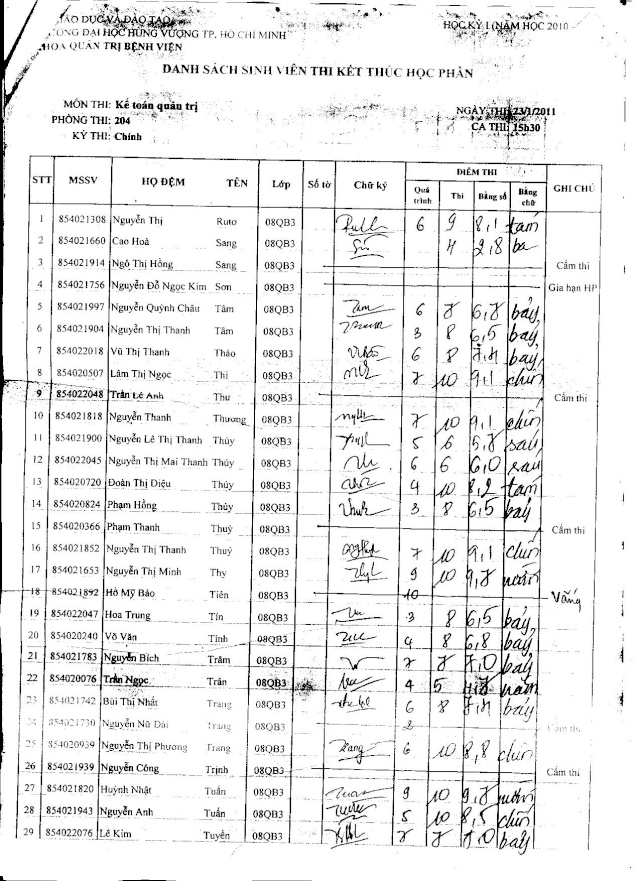 GIÁO DỤC VÀ ĐÀO TẠO
HỌC KỲ I (NĂM HỌC 2010 -
ĐẠI HỌC HÙNG VƯƠNG TP. HỒ CHÍ MINH
KHOA QUẢN TRỊ BỆNH VIỆN
DANH SÁCH SINH VIÊN THI KẾT THÚC HỌC PHẦN
MÔN THI: Kế toán quản trị
PHÒNG THI: 204
NGÀY THI: 23/1/2011
KỲ THI: Chính
CA THI: 15h30
STT MSSV HỌ ĐỆM TÊN Lớp Số tờ Chữ ký ĐIỂM THI GHI CHÚ
Quá trình Thi Bằng số Bằng chữ
1 854021308 Nguyễn Thị Rươ 08QB3 6 9 8,1 tám
2 854021660 Cao Hoà Sang 08QB3 4 2,8 ba
3 854021914 Ngô Thị Hồng Sang 08QB3 Cấm thi
4 854021756 Nguyễn Đỗ Ngọc Kim Sơn 08QB3 Gia hạn HP
5 854021997 Nguyễn Quỳnh Châu Tâm 08QB3 6 7 6,7 bảy
6 854021904 Nguyễn Thị Thanh Tâm 08QB3 3 8 6,5 bảy
7 854022018 Vũ Thị Thanh Thảo 08QB3 6 8 7,4 bảy
8 854020507 Lâm Thị Ngọc Thi 08QB3 7 10 9,1 chín
9 854022048 Trần Lê Anh Thư 08QB3 Cấm thi
10 854021818 Nguyễn Thanh Thương 08QB3 7 10 9,1 chín
11 854021900 Nguyễn Lê Thị Thanh Thúy 08QB3 5 6 5,7 sáu
12 854022045 Nguyễn Thị Mai Thanh Thúy 08QB3 6 6 6,0 sáu
13 854020720 Đoàn Thị Diệu Thúy 08QB3 4 10 8,2 tám
14 854020824 Phạm Hồng Thủy 08QB3 3 8 6,5 bảy
15 854020366 Phạm Thanh Thuỳ 08QB3 Cấm thi
16 854021852 Nguyễn Thị Thanh Thuỷ 08QB3 7 10 9,1 chín
17 854021653 Nguyễn Thị Minh Thy 08QB3 9 10 9,7 mười
18 854021892 Hồ Mỹ Bảo Tiên 08QB3 10 Vắng
19 854022047 Hoa Trung Tín 08QB3 3 8 6,5 bảy
20 854020240 Võ Văn Tính 08QB3 4 8 6,8 bảy
21 854021783 Nguyễn Bích Trâm 08QB3 7 7 7,0 bảy
22 854020076 Trần Ngọc Trân 08QB3 4 5 4,7 năm
23 854021742 Bùi Thị Nhất Trang 08QB3 6 8 7,4 bảy
24 854021730 Nguyễn Nữ Đài Trang 08QB3 Cấm thi
25 854020939 Nguyễn Thị Phương Trang 08QB3 6 10 8,8 chín
26 854021939 Nguyễn Công Trịnh 08QB3 Cấm thi
27 854021820 Huỳnh Nhật Tuấn 08QB3 9 10 9,7 mười
28 854021943 Nguyễn Anh Tuấn 08QB3 5 10 8,5 chín
29 854022076 Lê Kim Tuyền 08QB3 7 7 7,0 bảy